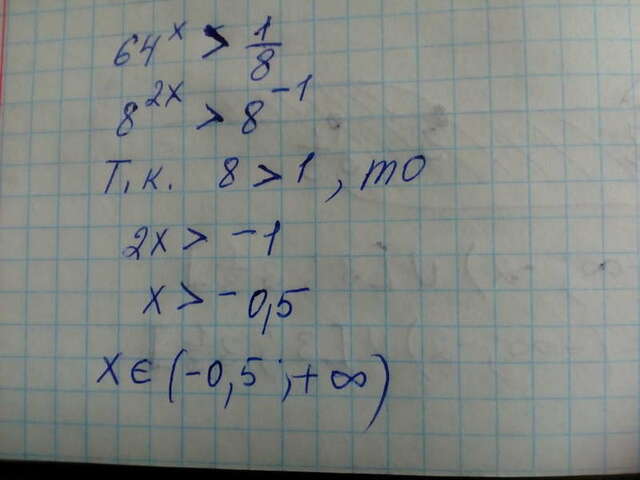 64^x > 1/8
8^{2x} > 8^{-1}
Т.к. 8 > 1, то
2x > -1
x > -0,5
x ∈ (-0,5; +∞)